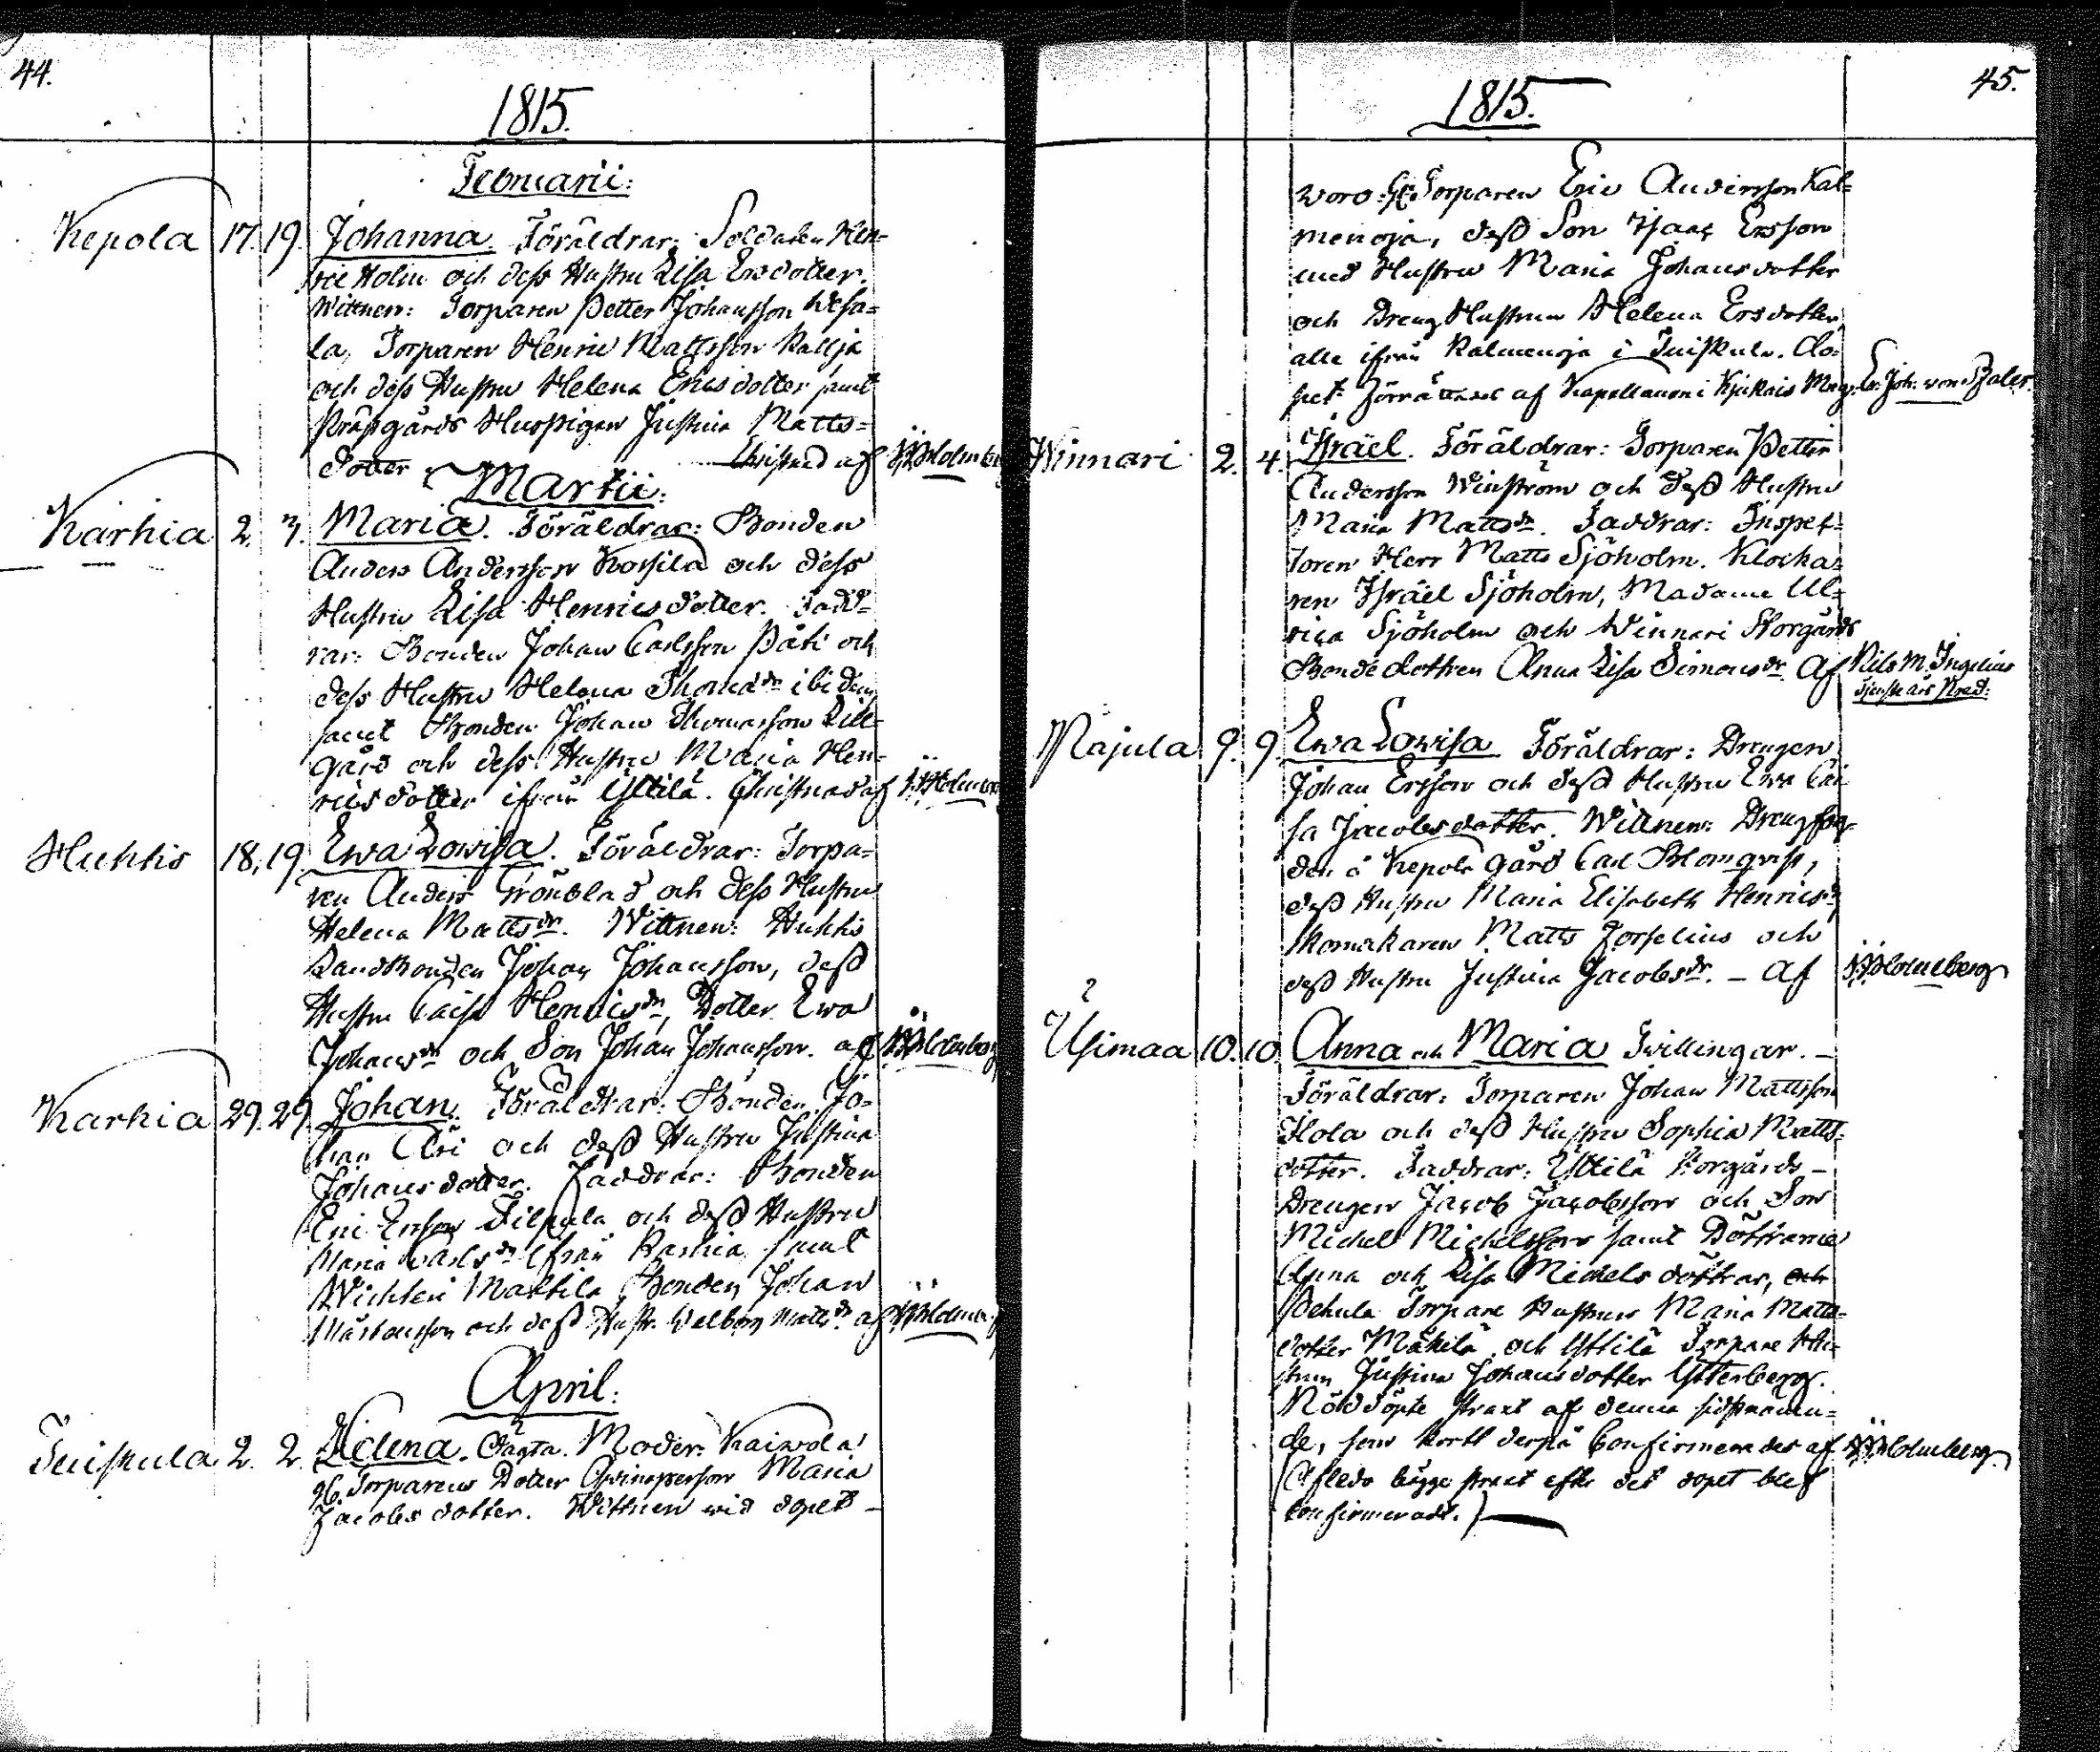 44.
1815.
Februarii:
Kepola 17. 19. Johanna. Föräldrar: Soldaten Hen-
ric Holm och dess Hustru Lisa Ersdotter.
Wittnen: Torparen Petter Johansson Wesa-
la, Torparen Henric Mattsson Kallja
och dess Hustru Helena Ericsdotter samt
Prästgårds Huspigan Justina Matts-
dotter Christnad af Holmberg
Martii:
Karhia 2. 3. Maria. Föräldrar: Bonden
Anders Andersson Kossila och dess
Hustru Lisa Henricsdotter. Fadd-
rar: Bonden Johan Carlsson Päti och
dess Hustru Helena Thomadr ibidem
samt Bonden Johan Thomasson Lill-
gård och dess Hustru Maria Hen-
ricsdotter ifrån Yttilä. Christnad af Holmberg
Huhtis 18. 19. Ewa Lowisa. Föräldrar: Torpa-
ren Anders Grönblad och dess Hustru
Helena Mattsdr. Wittnen: Huhtis
Landbonden Johan Johansson, dess
Hustru Caisa Henricsdr, Dotter Ewa
Johansdr och Son Johan Johansson. af Holmberg
Karhia 29. 29. Johan. Föräldrar: Bonden Jo-
han och dess Hustru Justina
Johansdotter. Faddrar: Bonden
Eric Ersson Filpula och dess Hustru
Maria Carlsdr ifrån Karhia samt
Mattila Bonden Johan
Mårtensson och dess Hustr. Walborg Mattsdr. af Holmberg
April:
Tuiskula 2. 2. Helena. Oägta. Moder: Kaiwola
Torparens Dotter Qwinsperson Maria
Jacobsdotter. Wittnen wid dopet
45.
1815.
woro: Torparen Eric Andersson Kal-
menoja, dess Son Isaac Ersson
med Hustru Maria Johansdotter
och Dreng Hustrun Helena Ersdotter,
alla ifrån Kalmenoja i Tuiskula. Do-
pet förrättades af Kapellanen i Kjukais Mag. Joh. von Zales.
Winnari 2. 4. Israel. Föräldrar: Torparen Petter
Andersson Winström och dess Hustru
Maria Mattsdr. Faddrar: Inspek-
toren Herr Matts Sjöholm. Klocka-
ren Israel Sjöholm, Madame Ul-
rica Sjöholm och Winnari Storgårds
Bondedottren Anna Lisa Simonsdr. Af Nils M. Ingelius
Majula 9. 9. Ewa Lowisa Föräldrar: Drengen
Johan Ersson och dess Hustru Ewa Cai-
sa Jacobsdotter. Wittnen: Drengfog-
den å Kepola gård Carl Blomqvist,
dess Hustru Maria Elisabeth Henricsdr
skomakaren Matts Forselius och
dess Hustru Justina Jacobsdr. – Af Holmberg
Usimaa 10. 10. Anna och Maria Twillingar. –
Föräldrar: Torparen Johan Mattsson
Ilola och dess Hustru Sophia Matts-
dotter. Faddrar: Yttilä Storgårds –
Drengen Jacob Jacobsson och Son
Michel Michelsson samt Döttrarne
Anna och Lisa Michelsdöttrar, och
Pehula Torpare Hustrun Maria Matts-
dotter Mäkilä och Yttilä Torpare Hu-
strun Justina Johansdotter Ytterberg.
Nöddöpte straxt af denna sistnämn-
de, som kort derpå Confirmerades af Holmberg
(Afledo bägge straxt efter det dopet blef
confirmeradt.)